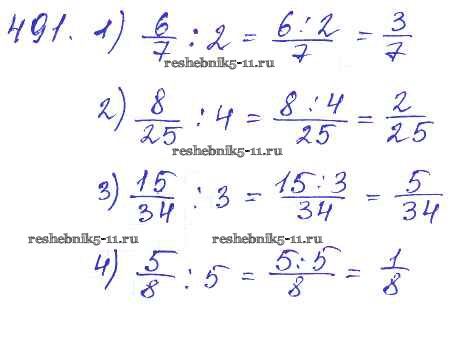 491. 1) 6/7 : 2 = 6:2/7 = 3/7
reshebnik5-11.ru
2) 8/25 : 4 = 8:4/25 = 2/25
reshebnik5-11.ru
3) 15/34 : 3 = 15:3/34 = 5/34
reshebnik5-11.ru reshebnik5-11.ru
4) 5/8 : 5 = 5:5/8 = 1/8